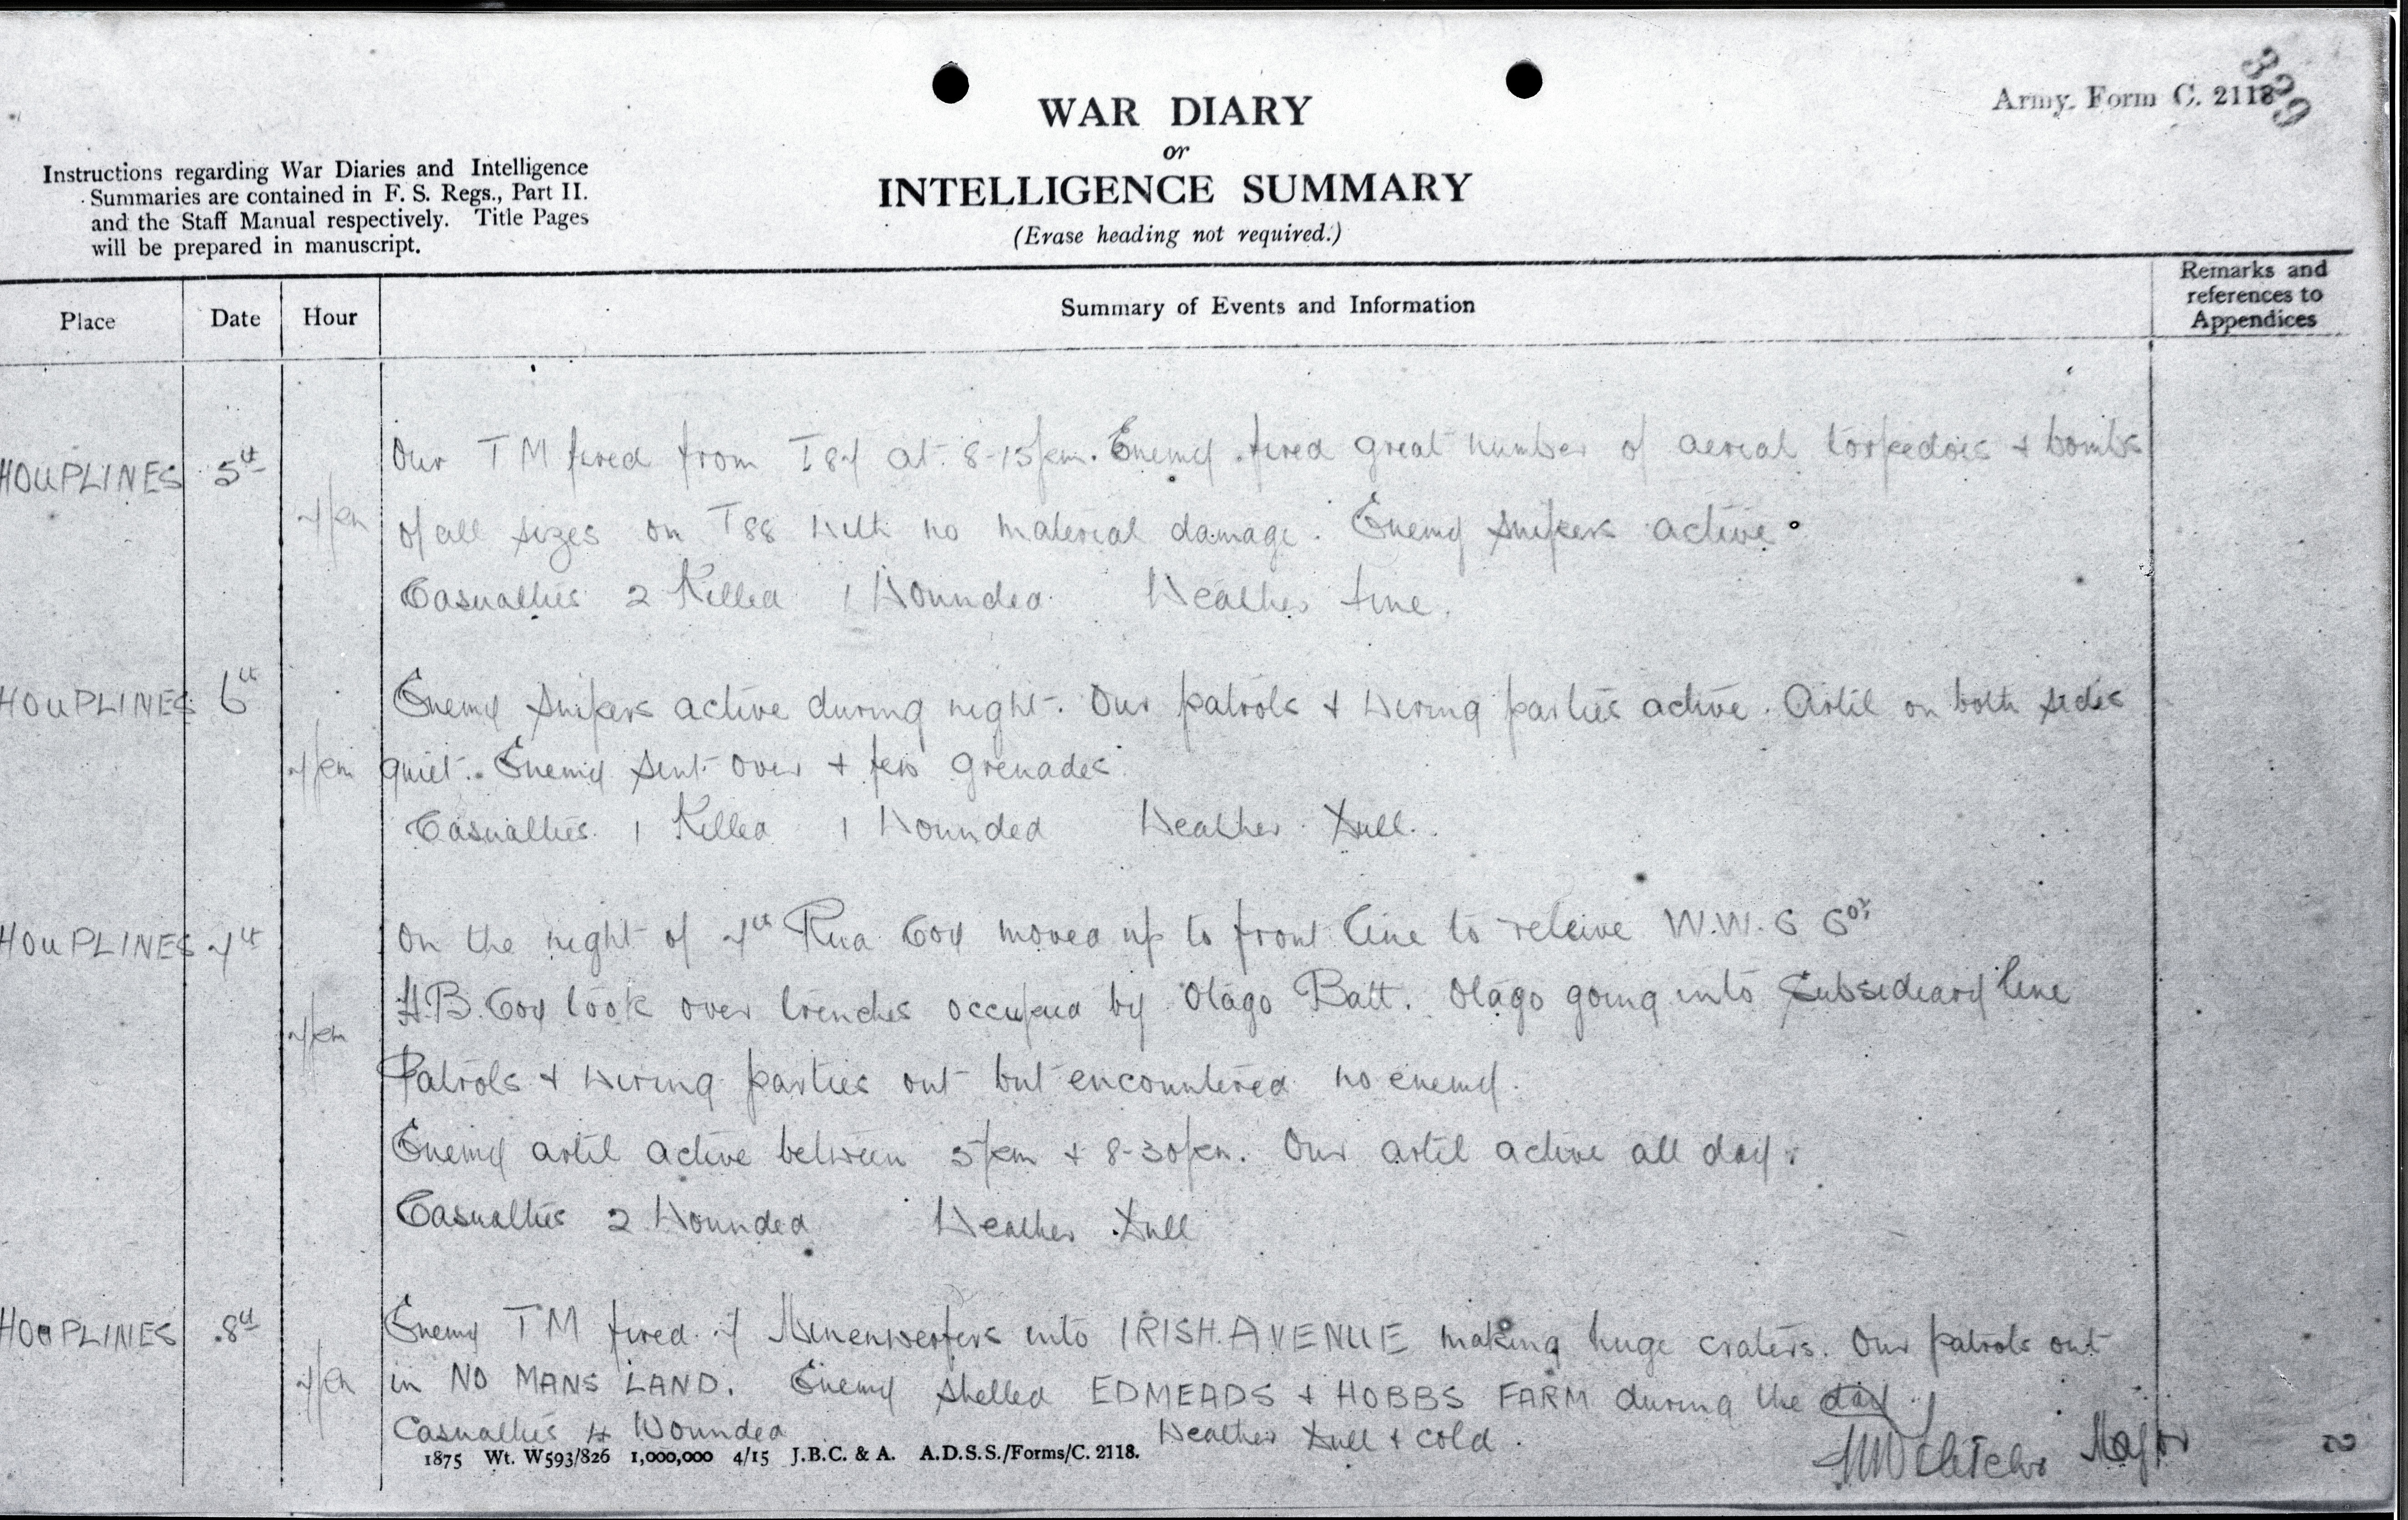 329
Army Form C. 2118
WAR DIARY
or
INTELLIGENCE SUMMARY
(Erase heading not required.)
Instructions regarding War Diaries and Intelligence
Summaries are contained in F. S. Regs., Part II.
and the Staff Manual respectively. Title Pages
will be prepared in manuscript.
Place Date Hour Summary of Events and Information Remarks and references to Appendices
HOUPLINES 5th Our TM fired from T87 at 8-15pm. Enemy fired great number of aerial torpedoes + bombs
7pm of all sizes on T88 with no material damage. Enemy snipers active.
Casualties 2 Killed 1 Wounded. Weather fine.
HOUPLINES 6th Enemy snipers active during night. Our patrols + wiring parties active. Artil on both sides
7pm quiet. Enemy sent over + few grenades.
Casualties 1 Killed 1 Wounded Weather Dull.
HOUPLINES 7th On the night of 7th Rua Coy moved up to front line to releive W.W.C Coy
7pm H.B. Coy took over trenches occupied by Otago Batt. Otago going into Subsideary line
Patrols + wiring parties out but encountered no enemy.
Enemy artil active between 5pm + 8-30pm. Our artil active all day.
Casualties 2 Wounded Weather Dull
HOUPLINES 8th Enemy TM fired 7 Minenwerfers into IRISH AVENUE making huge craters. Our patrols out
7pm in NO MANS LAND. Enemy shelled EDMEADS + HOBBS FARM during the day.
Casualties 4 Wounded Weather Dull + cold.
Major
2
1875 Wt. W593/826 1,000,000 4/15 J.B.C. & A. A.D.S.S./Forms/C. 2118.